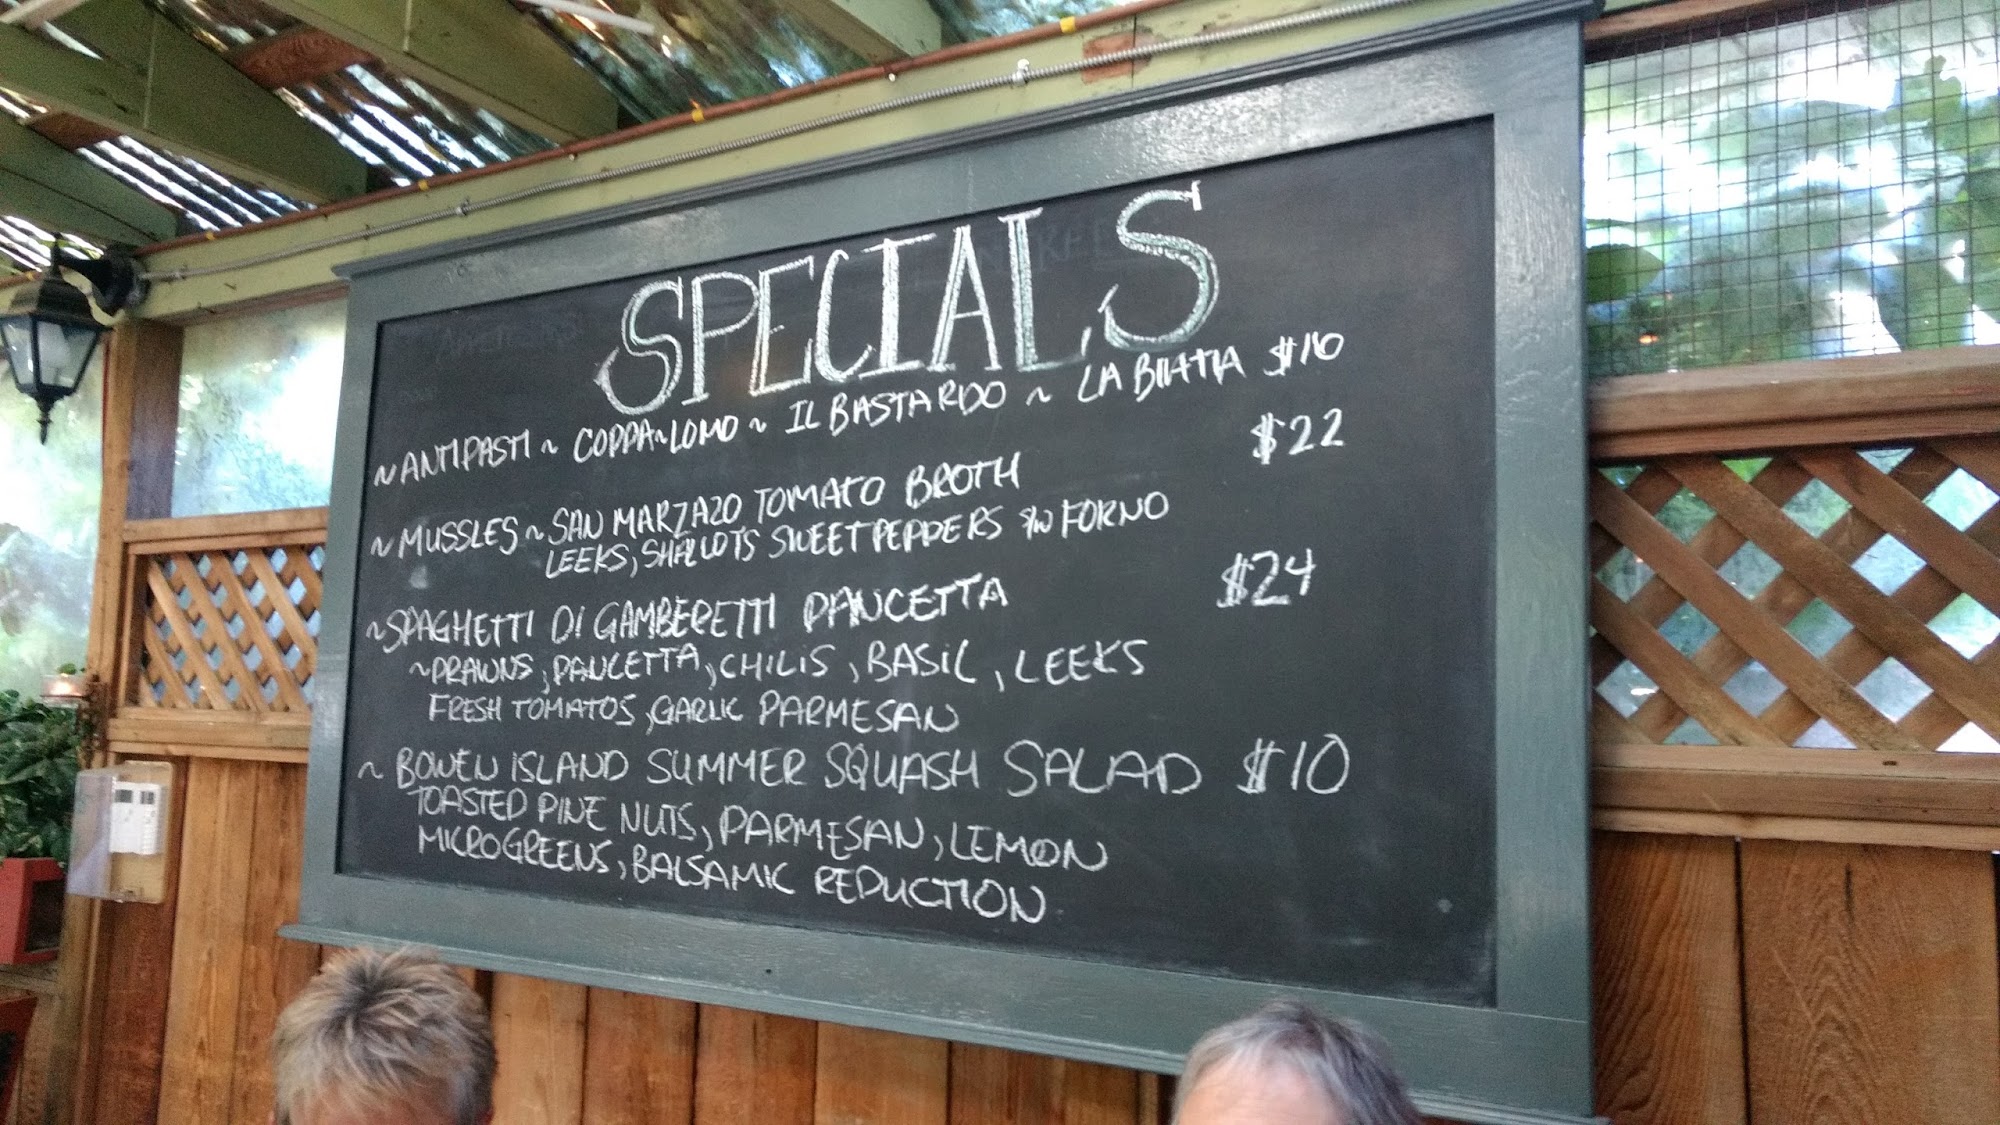 SPECIALS
~ ANTIPASTI ~ COPPA ~ LOMO ~ IL BASTARDO ~ LA $16
~ MUSSLES ~ SAN MARZAZO TOMATO BROTH $22
LEEKS, SHALLOTS SWEET PEPPERS FORNO
~ SPAGHETTI DI GAMBERETTI PANCETTA $24
~ PRAWNS, PANCETTA, CHILIS, BASIL, LEEKS
FRESH TOMATOS, GARLIC PARMESAN
~ BOWEN ISLAND SUMMER SQUASH SALAD $10
TOASTED PINE NUTS, PARMESAN, LEMON
MICROGREENS, BALSAMIC REDUCTION